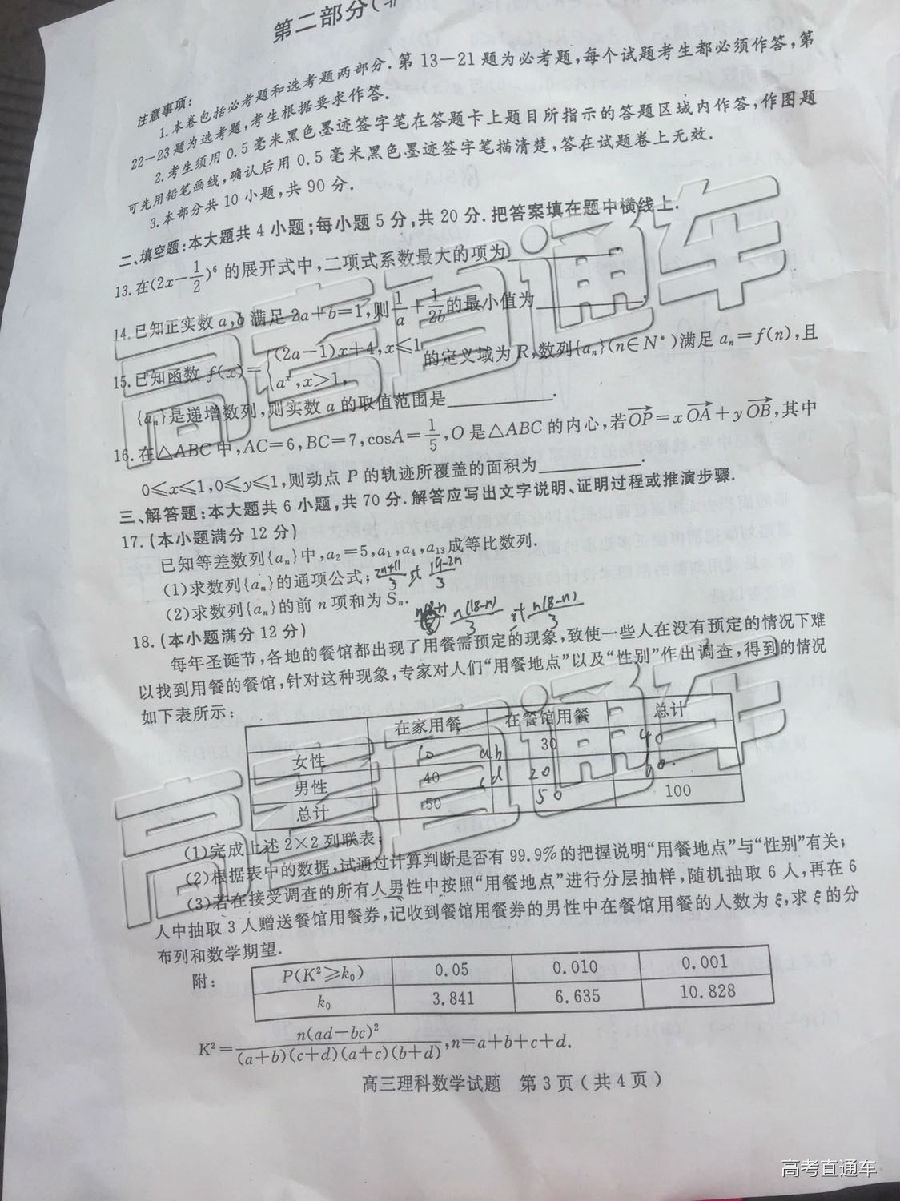 第二部分(非
注意事项:
1.本卷包括必考题和选考题两部分.第13—21题为必考题,每个试题考生都必须作答,第
22—23题为选考题,考生根据要求作答.
2.考生须用0.5毫米黑色墨迹签字笔在答题卡上题目所指示的答题区域内作答,作图题
可先用铅笔画线,确认后用0.5毫米黑色墨迹签字笔描清楚,答在试题卷上无效.
3.本部分共10小题,共90分.
二、填空题:本大题共4小题;每小题5分,共20分.把答案填在题中横线上.
13.在(2x-1/2)⁶的展开式中,二项式系数最大的项为
14.已知正实数a,b满足2a+b=1,则1/a+1/2b的最小值为
15.已知函数f(x)={(2a-1)x+4,x≤1 aˣ,x>1, 的定义域为R,数列{aₙ}(n∈N*)满足aₙ=f(n),且
{aₙ}是递增数列,则实数a的取值范围是.
16.在△ABC中,AC=6,BC=7,cosA=1/5,O是△ABC的内心,若OP=xOA+yOB,其中
0≤x≤1,0≤y≤1,则动点P的轨迹所覆盖的面积为.
三、解答题:本大题共6小题,共70分.解答应写出文字说明、证明过程或推演步骤.
17.(本小题满分12分)
已知等差数列{aₙ}中,a₂=5,a₁,a₄,a₁₃成等比数列.
(1)求数列{aₙ}的通项公式;
(2)求数列{aₙ}的前n项和为Sₙ.
n(18-n)/3
n(8-n)/3
18.(本小题满分12分)
每年圣诞节,各地的餐馆都出现了用餐需预定的现象,致使一些人在没有预定的情况下难
以找到用餐的餐馆,针对这种现象,专家对人们“用餐地点”以及“性别”作出调查,得到的情况
如下表所示:
在家用餐 在餐馆用餐 总计
女性 10 a b 30 40
男性 40 c d 20 60
总计 50 50 100
(1)完成上述2×2列联表;
(2)根据表中的数据,试通过计算判断是否有99.9%的把握说明“用餐地点”与“性别”有关;
(3)若在接受调查的所有人男性中按照“用餐地点”进行分层抽样,随机抽取6人,再在6
人中抽取3人赠送餐馆用餐券,记收到餐馆用餐券的男性中在餐馆用餐的人数为ξ,求ξ的分
布列和数学期望.
附:
P(K²≥k₀) 0.05 0.010 0.001
k₀ 3.841 6.635 10.828
K²=n(ad-bc)²/(a+b)(c+d)(a+c)(b+d),n=a+b+c+d.
高三理科数学试题 第3页(共4页)
高考直通车
高考直通车
高考直通车